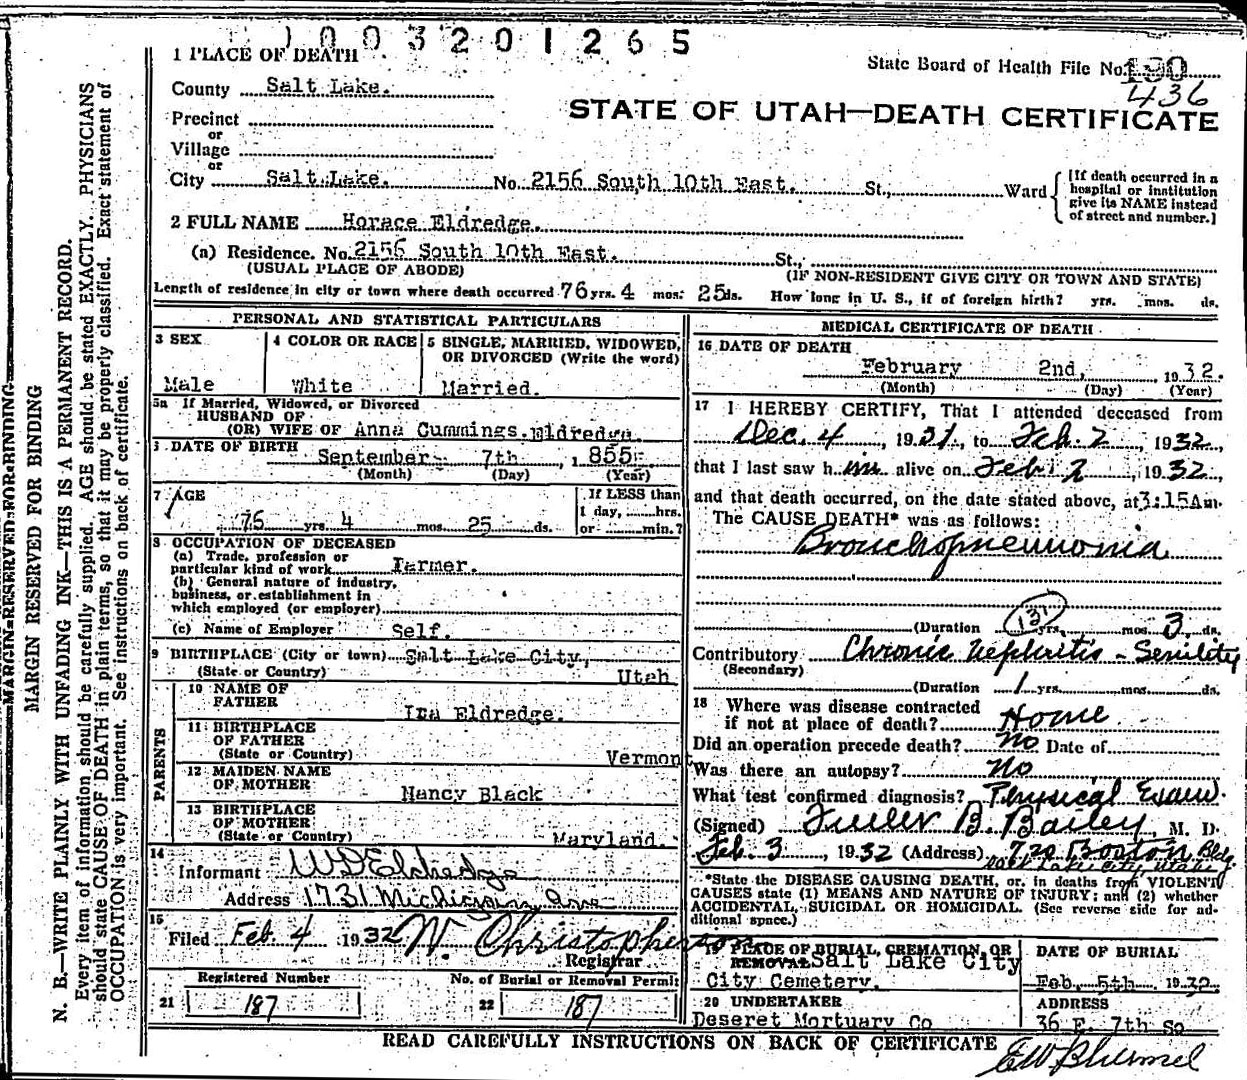 1003201265
1 PLACE OF DEATH
State Board of Health File No. 190
436
County Salt Lake.
STATE OF UTAH—DEATH CERTIFICATE
Precinct
or
Village
or
City Salt Lake. No. 2156 South 10th East. St., Ward
[If death occurred in a hospital or institution give its NAME instead of street and number.]
2 FULL NAME Horace Eldredge.
(a) Residence. No. 2156 South 10th East. St.,
(USUAL PLACE OF ABODE) (IF NON-RESIDENT GIVE CITY OR TOWN AND STATE)
Length of residence in city or town where death occurred 76 yrs. 4 mos. 25 ds. How long in U. S., if of foreign birth? yrs. mos. ds.
PERSONAL AND STATISTICAL PARTICULARS
3 SEX
Male
4 COLOR OR RACE
White
5 SINGLE, MARRIED, WIDOWED, OR DIVORCED (Write the word)
Married.
5a If Married, Widowed, or Divorced
HUSBAND OF
(OR) WIFE OF Anna Cummings Eldredge.
6 DATE OF BIRTH
September 7th, 1855
(Month) (Day) (Year)
7 AGE
76 yrs. 4 mos. 25 ds.
If LESS than
1 day, hrs.
or min.?
8 OCCUPATION OF DECEASED
(a) Trade, profession or
particular kind of work Farmer.
(b) General nature of industry,
business, or establishment in
which employed (or employer)
(c) Name of Employer Self.
9 BIRTHPLACE (City or town) Salt Lake City,
(State or Country) Utah
PARENTS
10 NAME OF
FATHER Ira Eldredge.
11 BIRTHPLACE
OF FATHER
(State or Country) Vermont
12 MAIDEN NAME
OF MOTHER Nancy Black
13 BIRTHPLACE
OF MOTHER
(State or Country) Maryland.
14
Informant W D Eldredge
Address 1731 Michigan Ave
15
Filed Feb. 4 1932 W. Christopherson
Registrar
Registered Number
21 187
No. of Burial or Removal Permit
22 187
MEDICAL CERTIFICATE OF DEATH
16 DATE OF DEATH
February 2nd, 1932.
(Month) (Day) (Year)
17 I HEREBY CERTIFY, That I attended deceased from
Dec. 4, 1931, to Feb. 2, 1932
that I last saw him alive on Feb. 2, 1932,
and that death occurred, on the date stated above, at 3:15Am.
The CAUSE DEATH* was as follows:
Bronchopneumonia
131
(Duration yrs. mos. 3 ds.
Contributory Chronic Nephritis - Senility
(Secondary)
(Duration 1 yrs. mos. ds.
18 Where was disease contracted
if not at place of death? Home
Did an operation precede death? no Date of
Was there an autopsy? No
What test confirmed diagnosis? Physical Exam.
(Signed) Fuller B. Bailey, M. D.
Feb. 3, 1932 (Address) 720 Boston Bldg.
Salt Lake City Utah
*State the DISEASE CAUSING DEATH, or, in deaths from VIOLENT
CAUSES state (1) MEANS AND NATURE OF INJURY; and (2) whether
ACCIDENTAL, SUICIDAL OR HOMICIDAL. (See reverse side for additional space.)
19 PLACE OF BURIAL, CREMATION, OR
REMOVAL Salt Lake City
City Cemetery.
DATE OF BURIAL
Feb. 5th 1932.
20 UNDERTAKER
Deseret Mortuary Co
ADDRESS
36 E. 7th So
READ CAREFULLY INSTRUCTIONS ON BACK OF CERTIFICATE
MARGIN RESERVED FOR BINDING
MARGIN RESERVED FOR BINDING
N. B.—WRITE PLAINLY WITH UNFADING INK—THIS IS A PERMANENT RECORD.
Every item of information should be carefully supplied. AGE should be stated EXACTLY. PHYSICIANS
should state CAUSE OF DEATH in plain terms, so that it may be properly classified. Exact statement of
OCCUPATION is very important. See instructions on back of certificate.